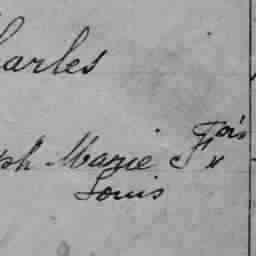 harles
ph Marie Fois
Louis